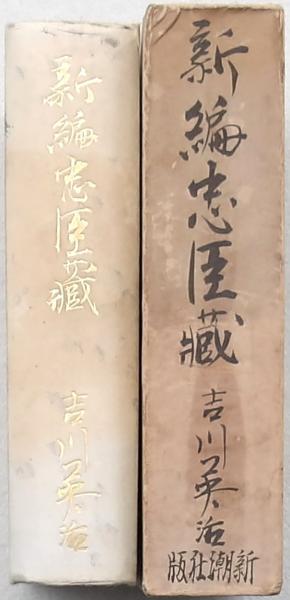 新編忠臣藏
吉川英治
新編忠臣藏
吉川英治
新潮社版